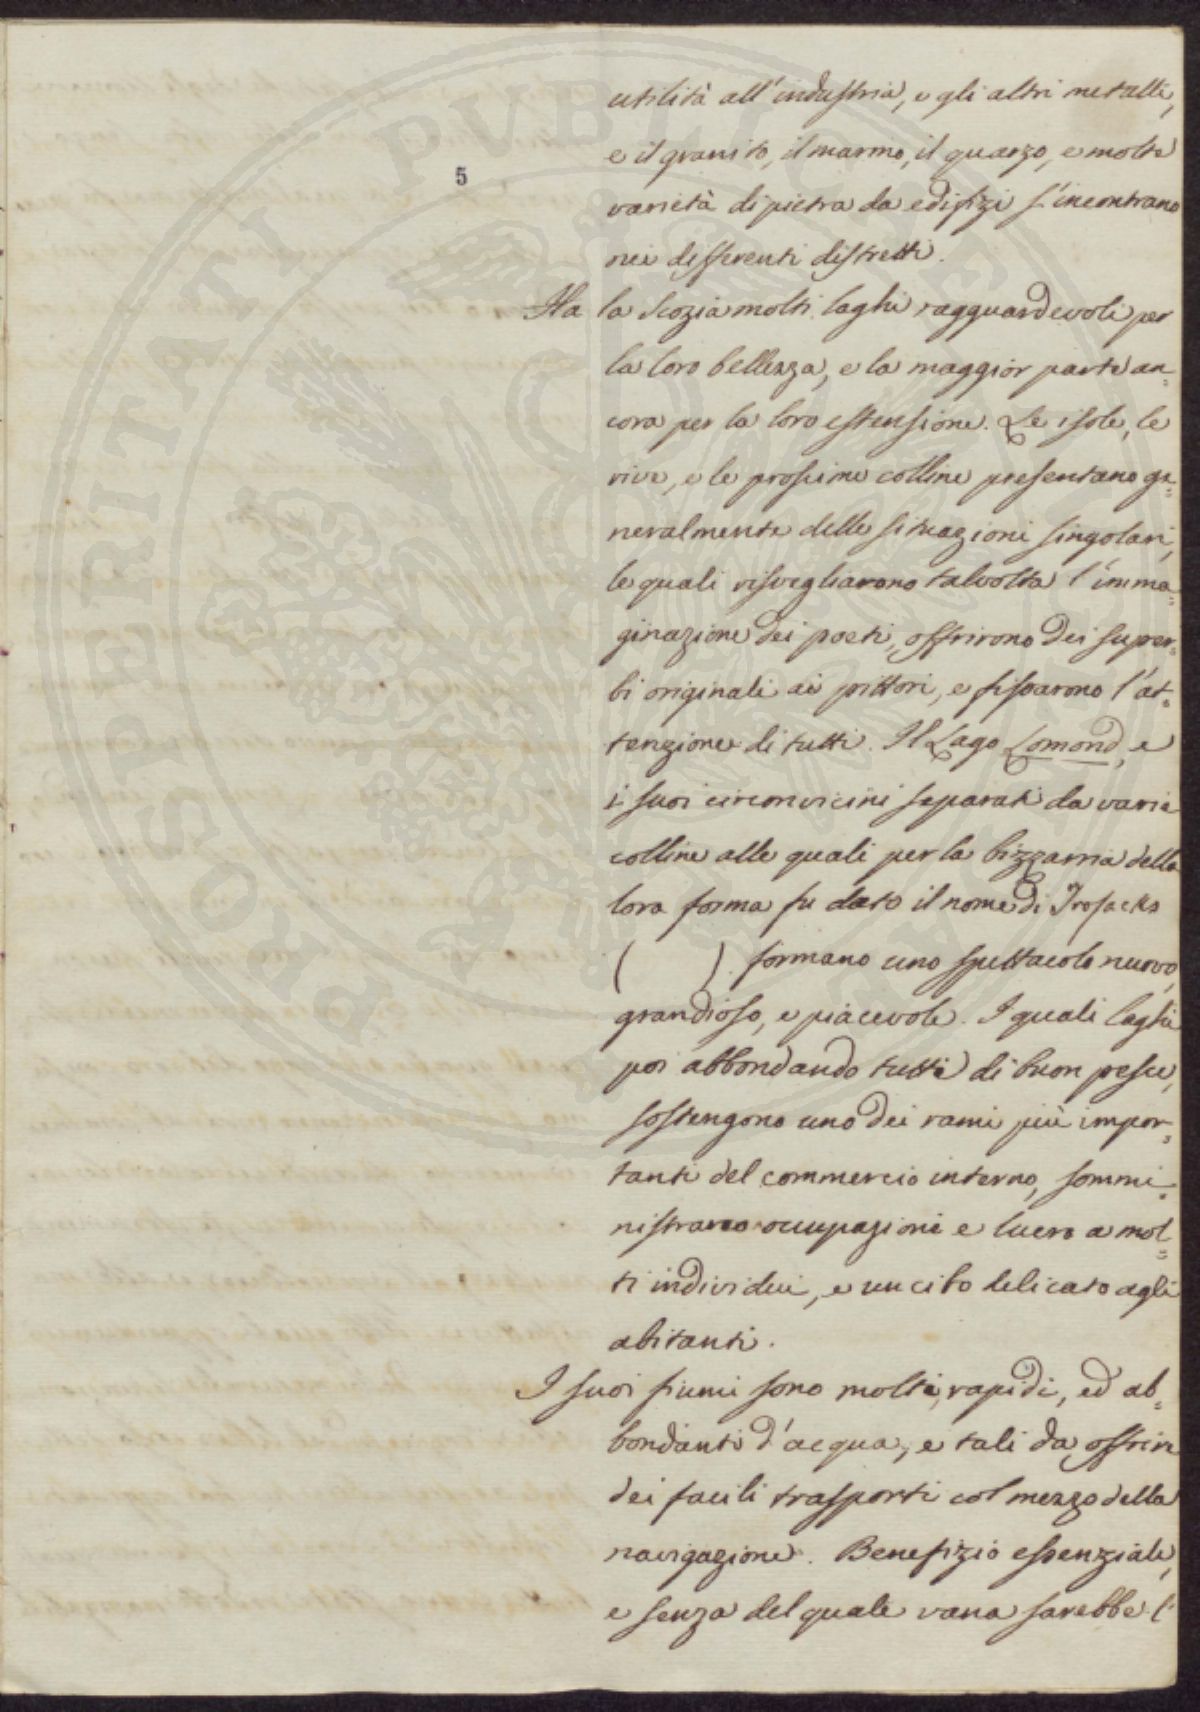 5
utilità all'industria, e gli altri metalli,
e il granito, il marmo, il quarzo, e molte
varietà di pietra da edifizi s'incontrano
nei differenti distretti.
Ha la Scozia molti laghi ragguardevoli per
la loro bellezza, e la maggior parte an=
cora per la loro estensione. Le isole, le
rive, e le prossime colline presentano ge=
neralmente delle situazioni singolari,
le quali risvegliarono talvolta l'imma=
ginazione dei poeti, offrirono dei super=
bi originali ai pittori, e fissarono l'at=
tenzione di tutti. Il Lago Lomond, e
i suoi circonvicini separati da varie
colline alle quali per la bizzarria della
loro forma fu dato il nome di Trosacks
( ) formano uno spettacolo nuovo,
grandioso, e piacevole. I quali laghi
poi abbondando tutti di buon pesce,
sostengono uno dei rami più impor=
tanti del commercio interno, sommi=
nistrano occupazione e lucro a mol=
ti individui, e un cibo delicato agli
abitanti.
I suoi fiumi sono molti, rapidi, ed ab=
bondanti d'acqua, e tali da offrire
dei facili trasporti col mezzo della
navigazione. Benefizio essenziale,
e senza del quale vana sarebbe l'
PROSPERITATI PUBLICAE